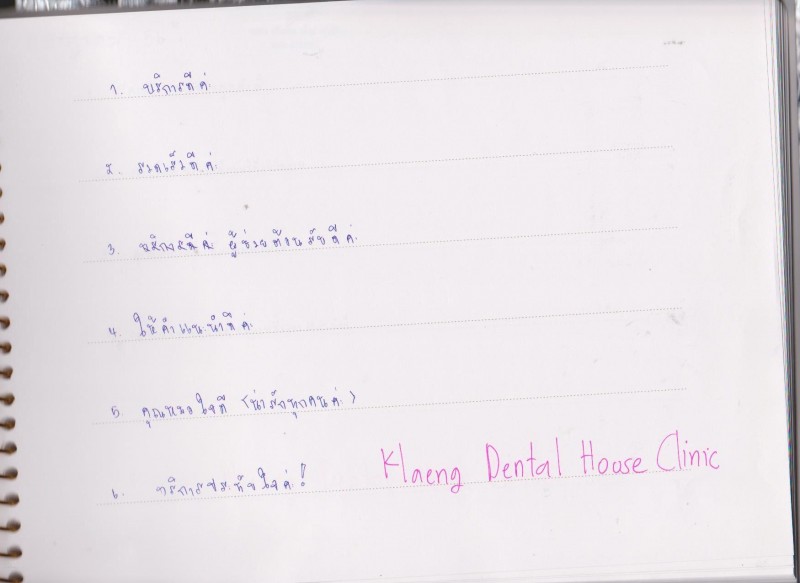 1. บริการดีค่ะ
2. รวดเร็วดีค่ะ
3. บริการดีค่ะ ผู้ช่วยต้อนรับดีค่ะ
4. ให้คำแนะนำดีค่ะ
5. คุณหมอใจดี (น่ารักทุกคนค่ะ)
6. บริการประทับใจค่ะ!
Klaeng Dental House Clinic